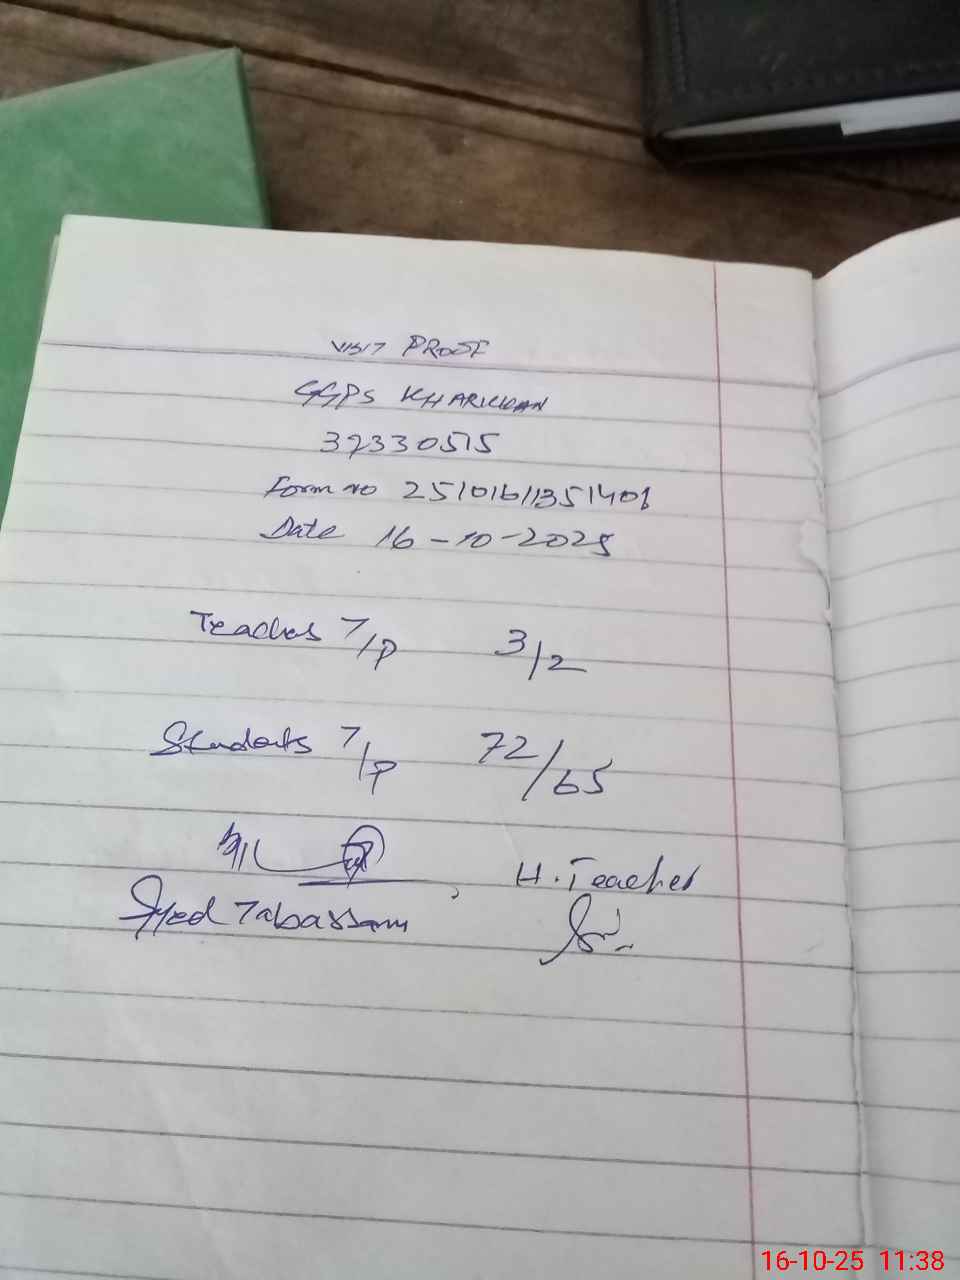 VISIT PROOF
GGPS KHARKHAN
32330515
Form no 25101611351408
Date 16-10-2025
Teaches T/P 3/2
Students T/P 72/65
Syed Tabassam
H. Teacher
16-10-25 11:38